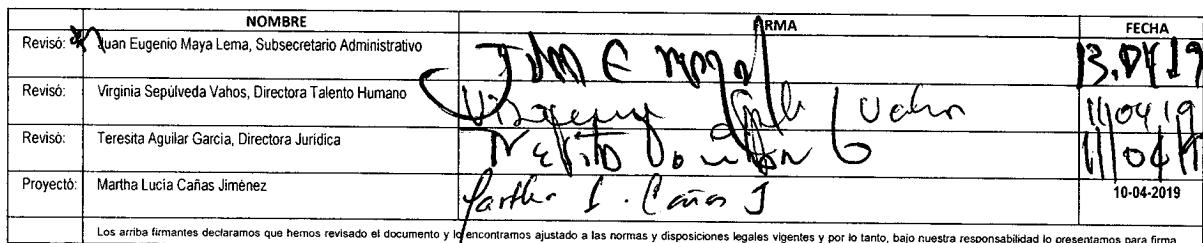 NOMBRE FIRMA FECHA
Revisó: Juan Eugenio Maya Lema, Subsecretario Administrativo Juan E Maya L 13.04.19
Revisó: Virginia Sepúlveda Vahos, Directora Talento Humano Vahos 11/04/19
Revisó: Teresita Aguilar García, Directora Jurídica 11/04/19
Proyectó: Martha Lucía Cañas Jiménez Martha L. Cañas J 10-04-2019
Los arriba firmantes declaramos que hemos revisado el documento y lo encontramos ajustado a las normas y disposiciones legales vigentes y por lo tanto, bajo nuestra responsabilidad lo presentamos para firma